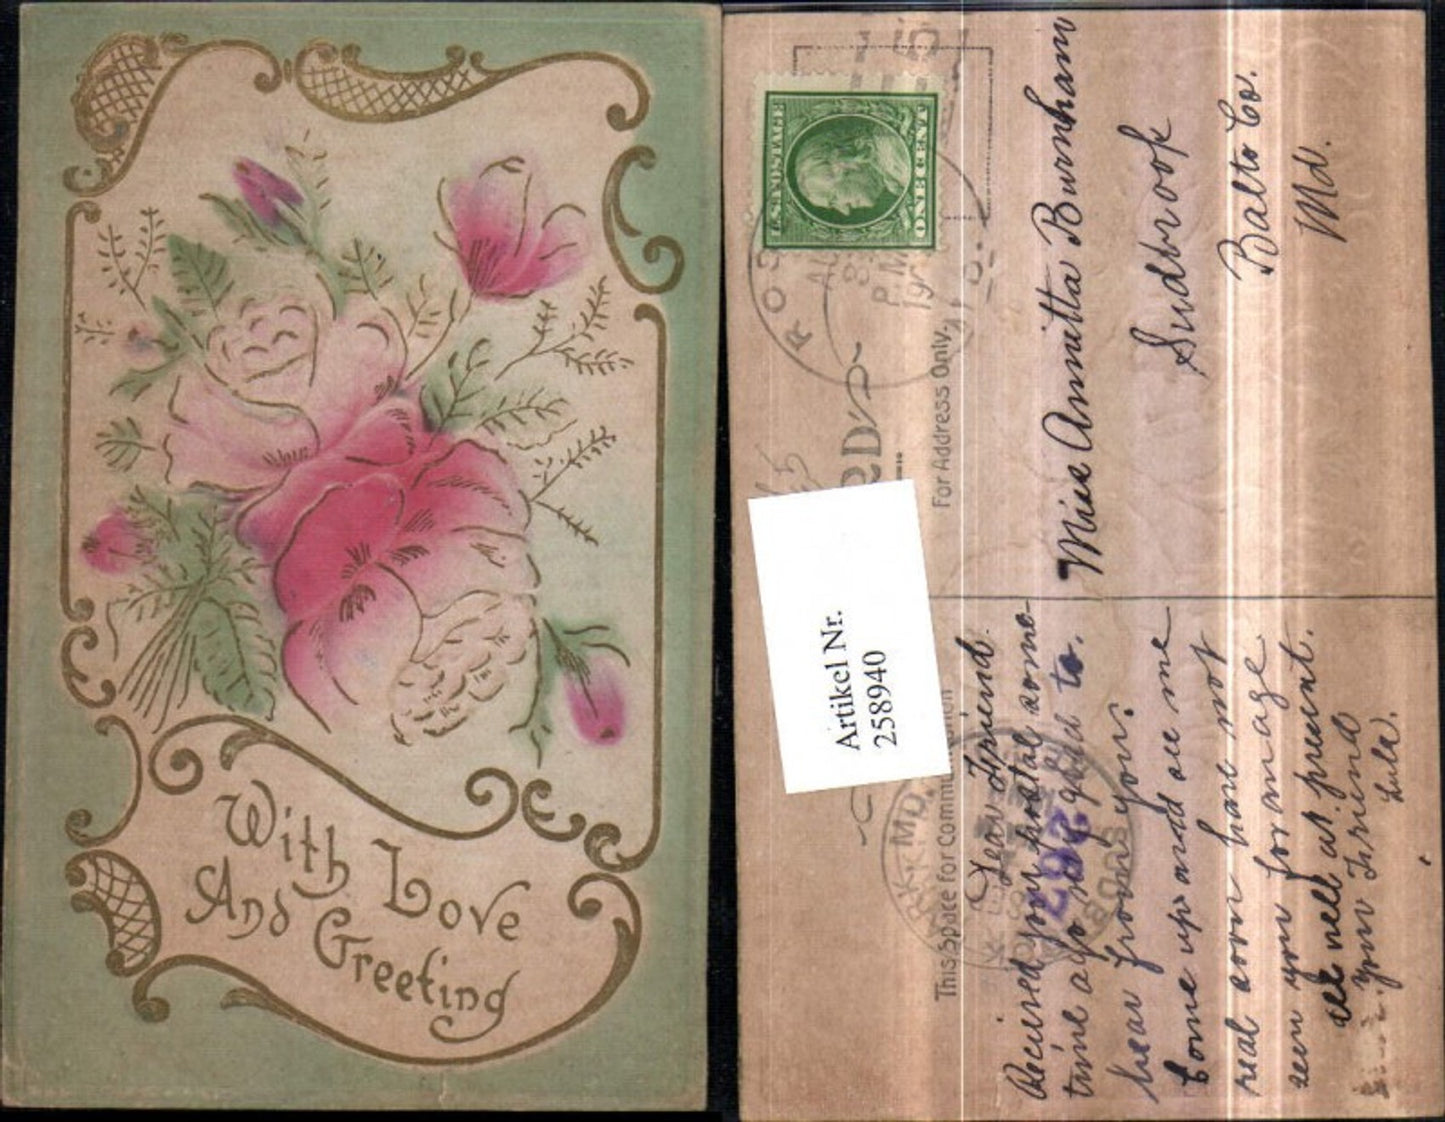 With Love
And Greeting
U.S. POSTAGE
ONE CENT
For Address Only.
Artikel Nr.
258940
Miss Annitta Burnham
Sudbrook
Balto Co.
Md.
This Space for
Dear Friend.
Recieved your postal some-
time ago and glad to.
hear from you.
Come up and see me
real soon have not
seen you for an age
all well at present.
your Friend
Lula.
267